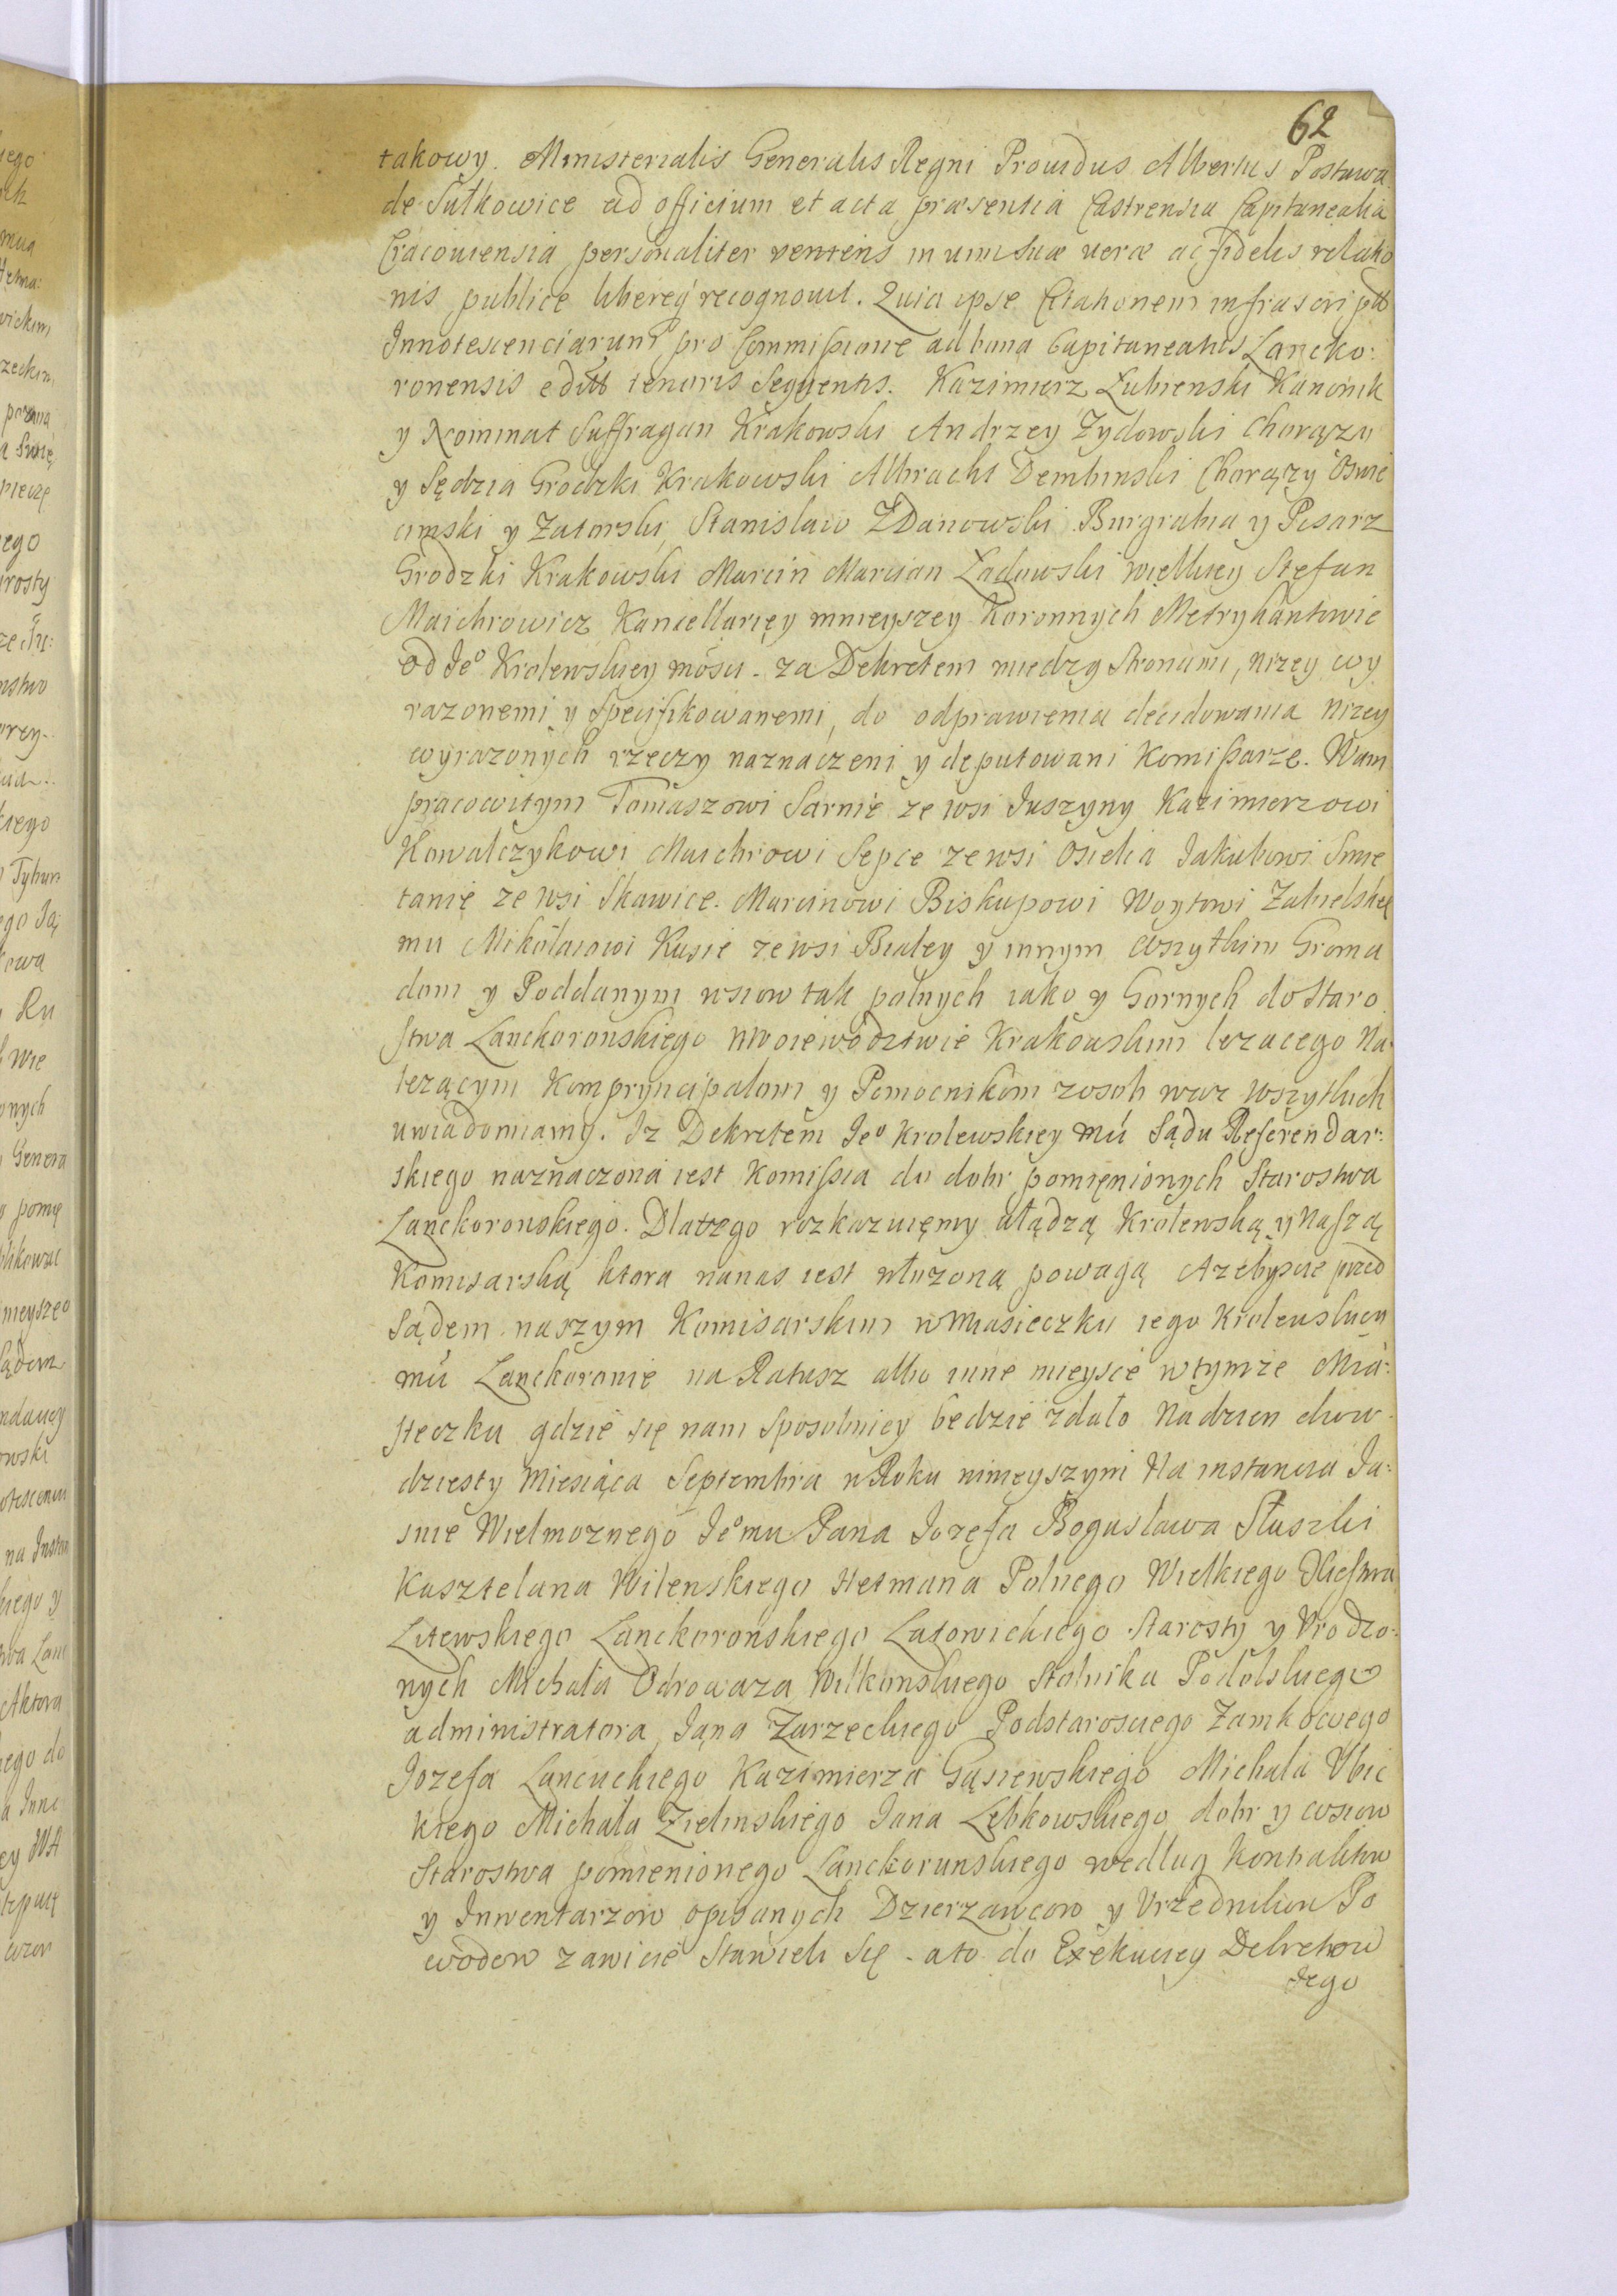 62
takowy. Ministerialis Generalis Regni Prouidus Albertus Postawa
de Sułkowice ad officium et acta præsentia Castrensia Capitanealia
Cracouiensia personaliter veniens in uim suæ veræ ac fidelis relatio
nis publice libereq recognouit. Quia ipse Citationem infrascriptt
Innotescenciarum pro Commissione ad bona Capitaneatus Lancko:
ronensis editt tenoris Sequentis. Kazimierz Łubienski Kanonik
y Nominat Suffragan Krakowski Andrzey Żydowski Chorązy
y Sędzia Grodzki Krakowski Albracht Dembinski Chorązy Oswie
cimski y Zatorski, Stanisław ZDanowski Burgrabia y Pisarz
Grodzki Krakowski Marcin Marcian Ładowski większey Stefan
Maichrowicz Kancellaryey mnieyszey Koronnych Metrykantowie
od Jeo Krolewskiey mósci - za Dekretem miedzy Stronami, nizey wy
razonemi y specifikowanemi, do odprawienia decidowania nizey
wyrazonych rzeczy naznaczeni y deputowani Komissarze. Wam
pracowitym Tomaszowi Sarnie ze wsi Juszyny Kazimierzowi
Kowalczykowi Maichrowi Sepce ze wsi Osielca Jakubowi Smie
tanie ze wsi Skawice. Marcinowi Biskupowi Woytowi Zabielske
mu Mikołaiowi Kusie ze wsi Białey y innym wszytkim Groma
dom y Poddanym wsiow tak polnych iako y Gornych do Staro
stwa Lanckoronskiego w Woiewodztwie Krakowskim lezacego Na
lezącym Kompryncipalom y Pomocnikom zosob waz wszytkich
uwiadomiamy. Iz Dekretem Jeo Krolewskiey mú Sądu Referendar:
skiego naznaczona iest Komissia do dobr pomienionych Starostwa
Lanckoronskiego. Dlatego rozkazuięmy włądzą Krolewską y Naszą
Komisarską ktora nanas iest włozoną powagą Azebyscie przed
Sądem naszym Komisarskim w Miasteczku iego Krolewskiey
mú Lanckoronie na Ratusz albo inne mieysce wtymze Mia:
steczku gdzie się nam sposobniey bedzie zdało Na dzien dwu
dziesty Miesiąca Septembra w Roku ninieyszym Na instancia Ja:
snie Wielmoznego Jeo mu Pana Jozefa Bogusława Słuszki
Kasztelana Wilenskiego Hetmana Polnego Wielkiego Xiestwa
Litewskiego Lanckoronskiego Latowickiego Starosty y Vrodzo:
nych Michała Odrowaza Wilkonskiego Stolnika Podolskiego
administratora, Jana Zarzeckiego Podstarosciego Zamkowego
Jozefa Lancuckiego Kazimierza Gąsiewskiego Michała Vbic
kiego Michała Zielinskiego Jana Lębkowskiego dobr y wsiow
Starostwa pomienionego Lanckorunskiego według Kontraktow
y Inwentarzow opisanych Dzierzawcow y Vrzednikow Po
wodow zawicie Stawieli Się - ato do Exekucyey Dekretow
Jego